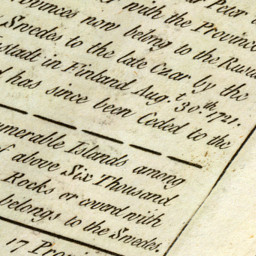 Peter
with the Province
ovinces now belong to the Russi
Swedes to the late Czar by the
stadt in Finland Aug.t 30.th 1721.
d has since been Ceded to the
umerable Islands among
f above Six Thousand
Rocks or coverd with
belongs to the Swedes.
17 Pro